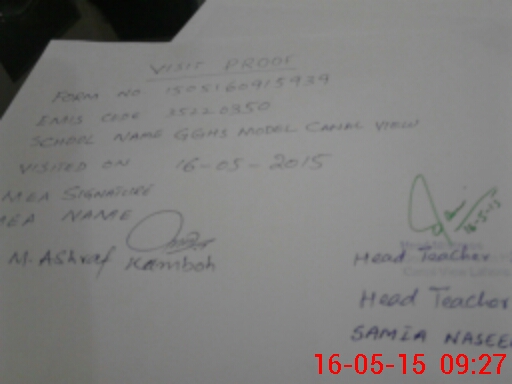 VISIT PROOF
FORM NO 1505160915939
EMIS CODE 35220350
SCHOOL NAME GGHS MODEL CANAL VIEW
VISITED ON 16-05-2015
MEA SIGNATURE
MEA NAME
M. AShraf Kamboh
16-5-15
Head Teacher
Head Teacher
SAMIA NASEE
16-05-15 09:27